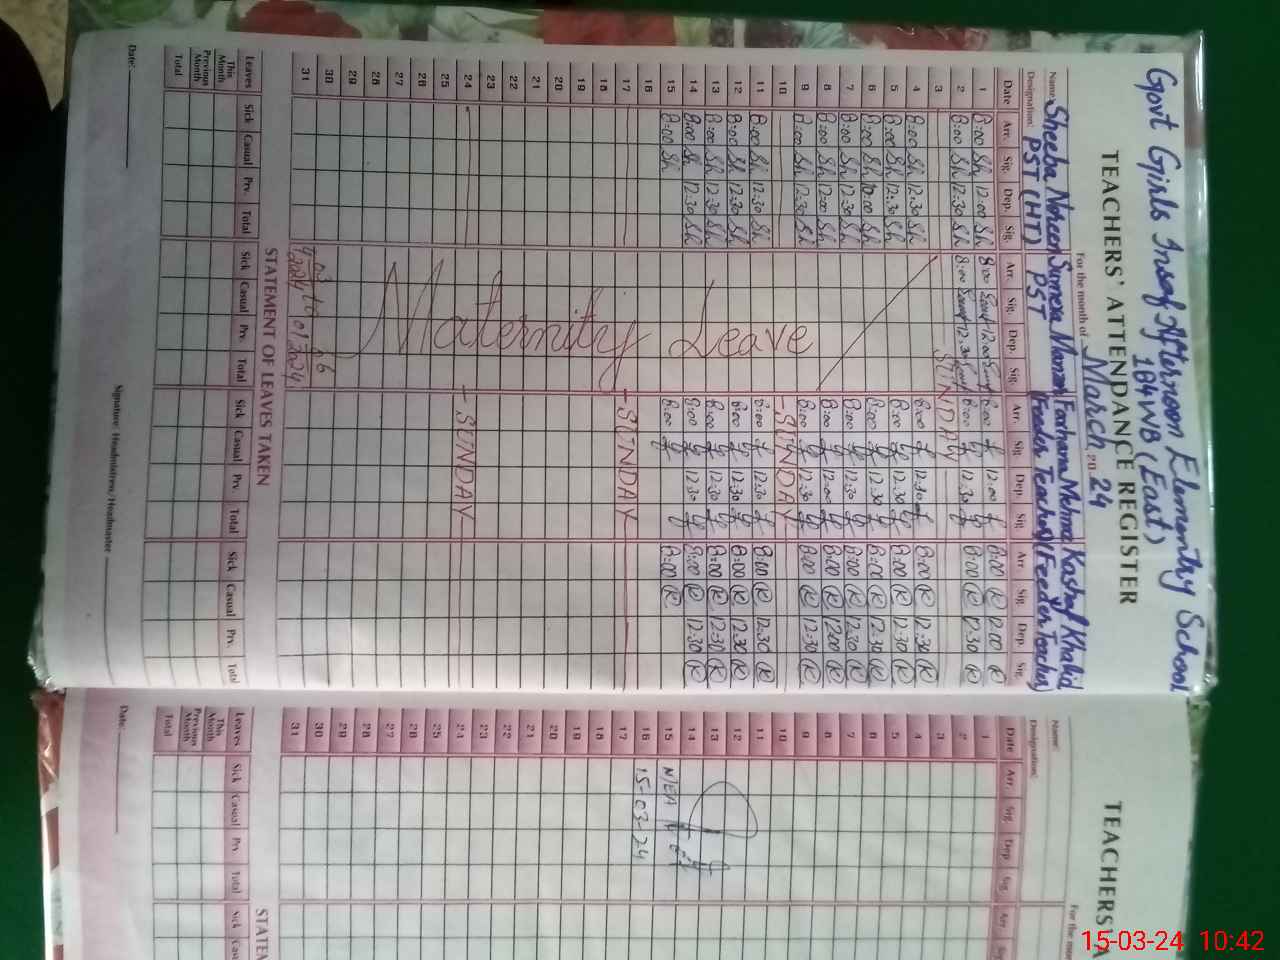 Govt Girls Insaf Afternoon Elementry School
184 WB (East)
TEACHERS' ATTENDANCE REGISTER
For the month of March 2024
Name Sheeba Noreen Farzhana Mehna Kashaf Khalid
Designation: PST (HT) PST (Feeder Teacher) (Feeder Teacher)
Date Arr. Sig. Dep. Sig. Arr. Sig. Dep. Sig. Arr. Sig. Dep. Sig. Arr. Sig. Dep. Sig.
1 8:00 Sh 12:00 Sh 8:00 12:00 8:00 12:00 8:00 K 12:00 K
2 8:00 Sh 12:30 Sh 8:00 12:30 8:00 12:30 8:00 K 12:30 K
3 SUNDAY
4 8:00 Sh 12:30 Sh 8:00 12:30 8:00 K 12:30 K
5 8:00 Sh 12:30 Sh 8:00 12:30 8:00 K 12:30 K
6 8:00 Sh 12:30 8:00 K 12:30 K
7 8:00 Sh 12:30 Sh 8:00 12:30 8:00 K 12:30 K
8 8:00 Sh 12:00 Sh 8:00 12:00 8:00 K 12:00 K
9 8:00 Sh 12:30 Sh 8:00 12:30 8:00 K 12:30 K
10 SUNDAY
11 8:00 Sh 12:30 Sh 8:00 12:30 8:00 K 12:30 K
12 8:00 Sh 12:30 Sh 8:00 12:30 8:00 K 12:30 K
13 8:00 Sh 12:30 Sh 8:00 12:30 8:00 K 12:30 K
14 8:00 Sh 12:30 Sh 8:00 12:30 8:00 K 12:30 K
15 8:00 Sh 8:00 8:00 K
16
17 SUNDAY
18
19
20
21
22
23
24 SUNDAY
25
26
27
28
29
30
31
Maternity Leave
STATEMENT OF LEAVES TAKEN
Leaves Sick Casual Prv. Total Sick Casual Prv. Total Sick Casual Prv. Total Sick Casual Prv. Total
This Month
Previous Month
Total
Date:
Signature: Headmistress/Headmaster
TEACHERS' A
For the mon
Name:
Designation:
Date Arr. Sig. Dep. Sig. Arr. Sig.
1
2
3
4
5
6
7
8
9
10
11
12
13
14
15 MEA
16 15-03-24
17
18
19
20
21
22
23
24
25
26
27
28
29
30
31
STATEM
Leaves Sick Casual Prv. Total Sick Cas
This Month
Previous Month
Total
Date:
15-03-24 10:42